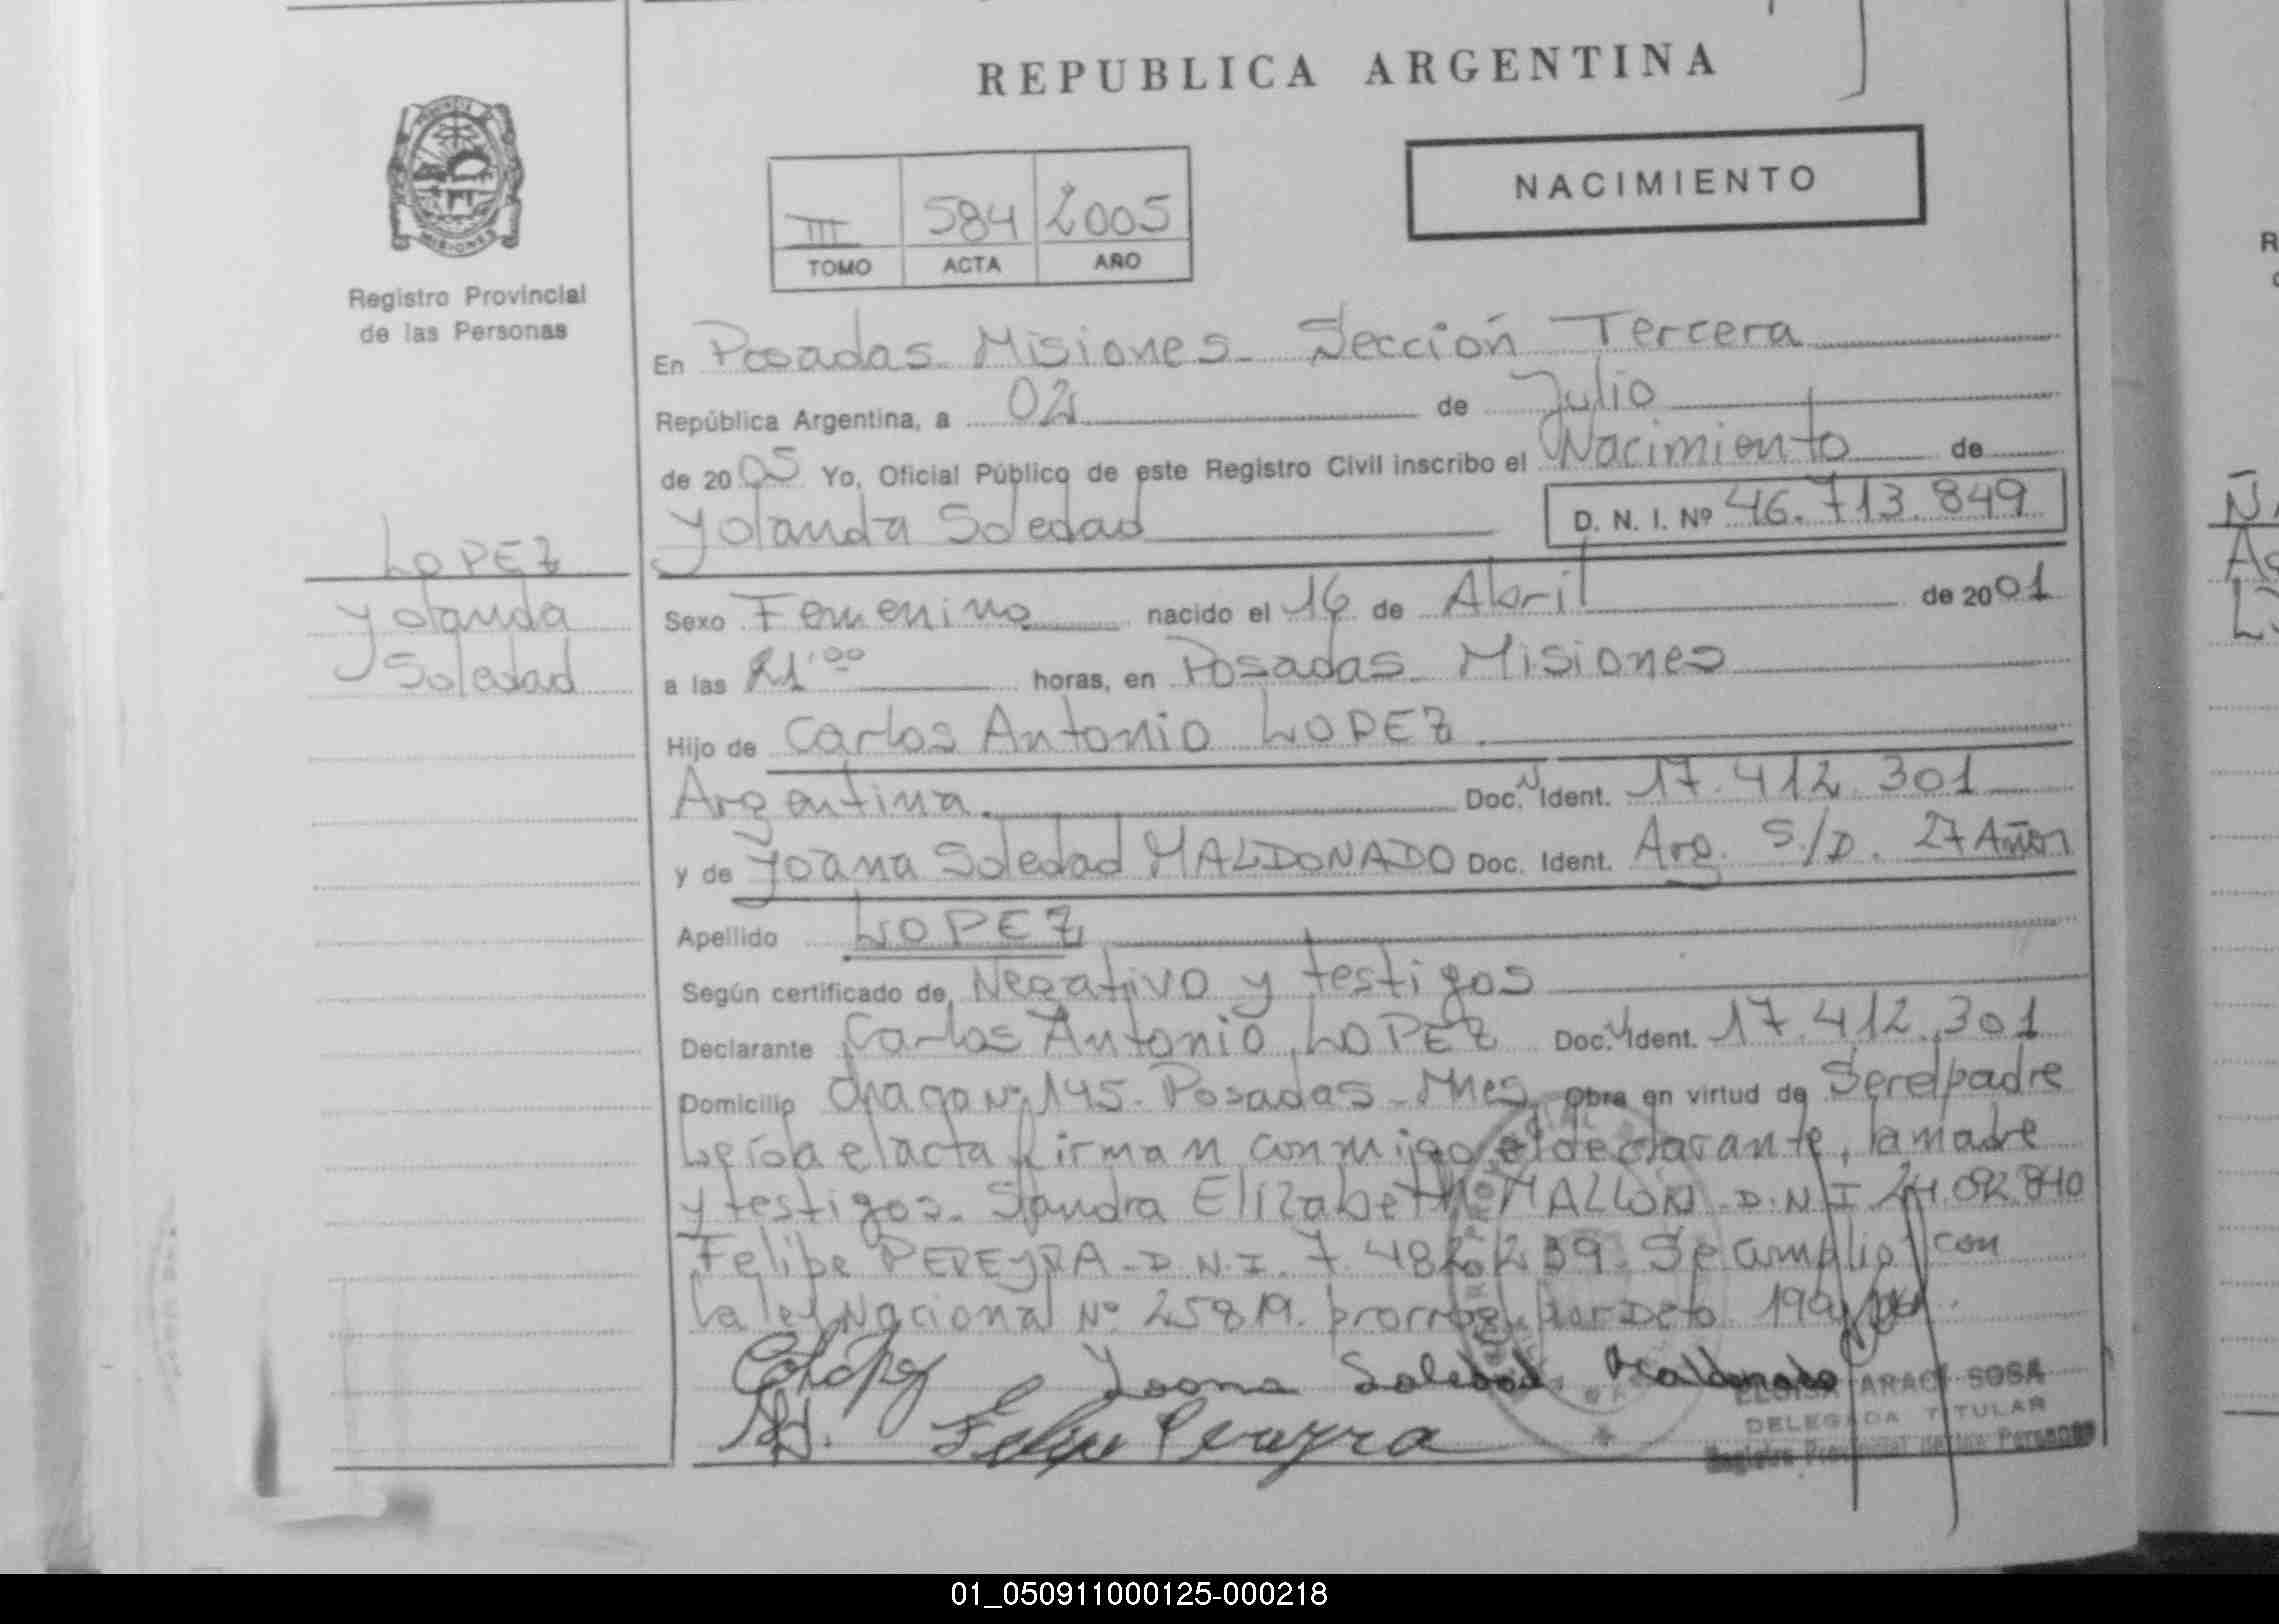 REPUBLICA ARGENTINA
NACIMIENTO
III 584 2005
TOMO ACTA AÑO
PROVINCIA
MISIONES
Registro Provincial
de las Personas
En Posadas Misiones Sección Tercera
República Argentina, a 02 de Julio
de 2005 Yo, Oficial Público de este Registro Civil inscribo el Nacimiento de
Yolanda Soledad D. N. I. Nº 46.713.849
LOPEZ
Yolanda
Soledad
Sexo Femenino nacido el 16 de Abril de 2001
a las 21:00 horas, en Posadas Misiones
Hijo de Carlos Antonio LOPEZ
Argentina Doc. Ident. 17.412.301
y de Yoana Soledad MALDONADO Doc. Ident. Arg. S/D. 27 Años
Apellido LOPEZ
Según certificado de Negativo y testigos
Declarante Carlos Antonio LOPEZ Doc. Ident. 17.412.301
Domicilio Nº 145. Posadas - Mnes Obra en virtud de Ser el padre
Leída el acta firman conmigo el declarante, la madre
y testigos. Sandra Elizabeth D.N.I. 24.092.840
Felipe PEREYRA - D.N.I. 7.482.239. Se amplió con
la ley Nacional Nº 25819. por Dcto
Yoana Soledad Maldonado
Felipe Pereyra
SOSA
DELEGADA TITULAR
Registro Provincial de las Personas
R
01_050911000125-000218